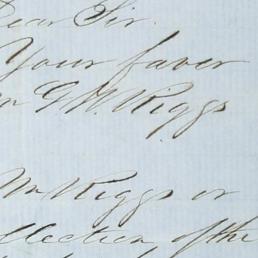 Dear Sir.
Your favor
G. W. Riggs
Mr Riggs or
llection, of the